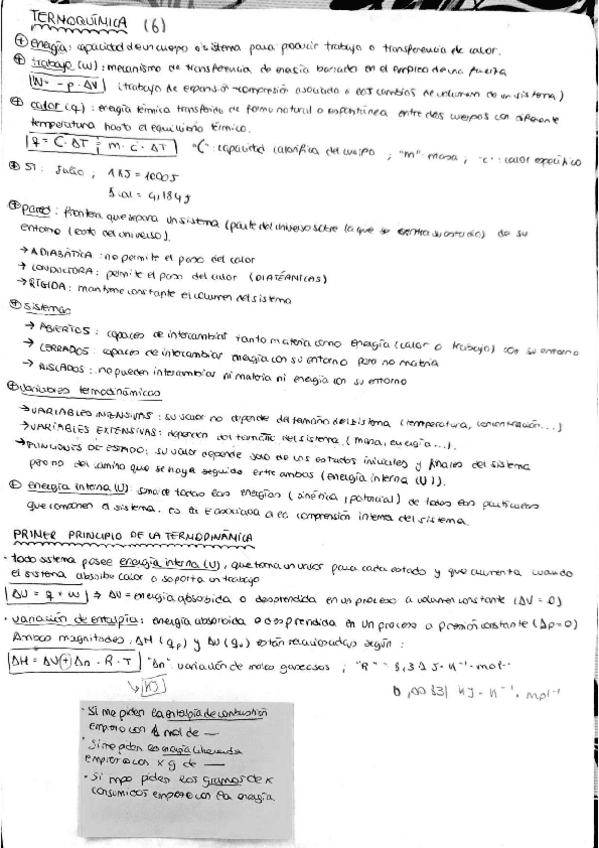 TERMOQUÍMICA (6)
energía: capacidad de un cuerpo o sistema para producir trabajo o transferencia de calor.
trabajo (w): mecanismo de transferencia de energía basado en el empleo de una fuerza
W = - p · ΔV (trabajo de expansión-compresión asociado a los cambios de volumen de un sistema)
calor (q): energía térmica transferida de forma natural o espontánea entre dos cuerpos con diferente
temperatura hasta el equilibrio térmico.
q = C · ΔT = m · c · ΔT "C": capacidad calorífica del cuerpo ; "m": masa ; "c": calor específico
SI: Julio ; 1 KJ = 1000 J
1 cal = 4,184 J
pared: frontera que separa un sistema (parte del universo sobre la que se centra su estudio) de su
entorno (resto del universo).
→ ADIABÁTICA: no permite el paso del calor
→ CONDUCTORA: permite el paso del calor (DIATÉRMICAS)
→ RÍGIDA: mantiene constante el volumen del sistema
sistemas
→ ABIERTOS: capaces de intercambiar tanto materia como energía (calor o trabajo) con su entorno
→ CERRADOS: capaces de intercambiar energía con su entorno pero no materia
→ AISLADOS: no pueden intercambiar ni materia ni energía con su entorno
variables termodinámicas
→ VARIABLES INTENSIVAS: su valor no depende del tamaño del sistema (temperatura, concentración...)
→ VARIABLES EXTENSIVAS: dependen del tamaño del sistema (masa, energía...).
→ FUNCIONES DE ESTADO: su valor depende solo de los estados iniciales y finales del sistema
pero no del camino que se haya seguido entre ambos (energía interna (U)).
energía interna (U): suma de todas las energías (cinética, potencial) de todas las partículas
que componen el sistema. es la asociada a la comprensión interna del sistema.
PRIMER PRINCIPIO DE LA TERMODINÁMICA
· todo sistema posee energía interna (U), que toma un valor para cada estado y que aumenta cuando
el sistema absorbe calor o soporta un trabajo
ΔU = q + w ⇒ ΔU = energía absorbida o desprendida en un proceso a volumen constante (ΔV = 0)
· variación de entalpía: energía absorbida o desprendida en un proceso a presión constante (Δp=0)
Ambas magnitudes, ΔH (qp) y ΔU (qv) están relacionadas según:
ΔH = ΔU + Δn · R · T "Δn": variación de moles gaseosos ; "R" = 8,31 J · K⁻¹ · mol⁻¹
KJ 0,00831 KJ · K⁻¹ · mol⁻¹
· Si me piden la entalpía de combustión
empiezo con 1 mol de —
· Si me piden la energía liberada
empiezo con x g de —
· Si me piden los gramos de x
consumidos empiezo con la energía